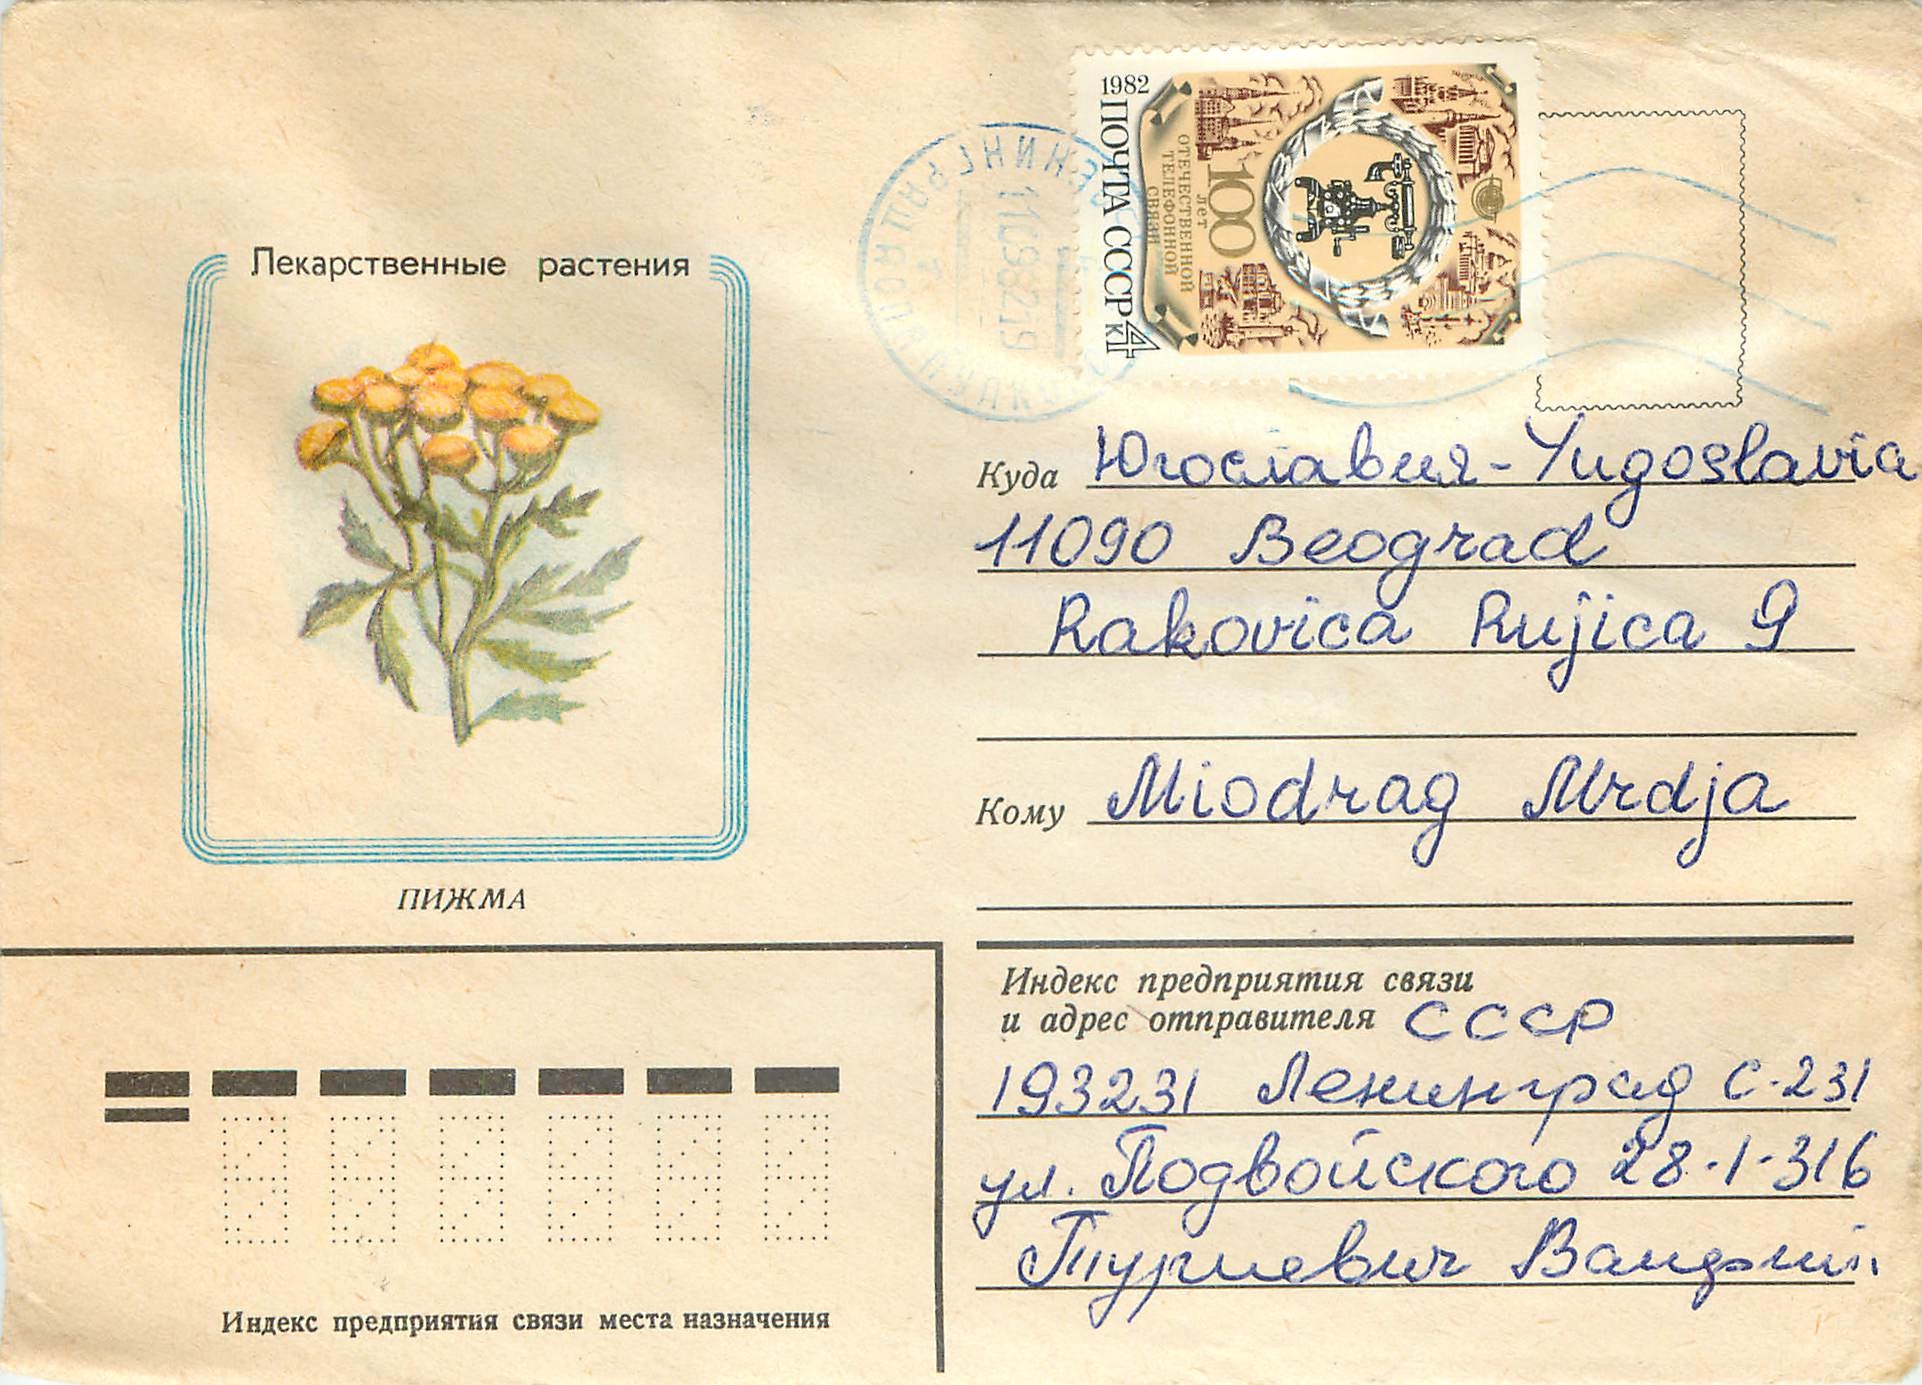 1982
ПОЧТА СССР 4 К
100
лет
ОТЕЧЕСТВЕННОЙ
ТЕЛЕФОННОЙ
СВЯЗИ
11 09 82 19
Лекарственные растения
ПИЖМА
Куда Югославия - Yugoslavia
11090 Beograd
Rakovica Rujica 9
Кому Miodrag Mrdja
Индекс предприятия связи
и адрес отправителя СССР
193231 Ленинград С-231
ул. Подвойского 28-1-316
Индекс предприятия связи места назначения